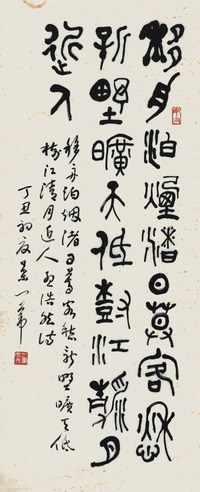 移舟泊煙渚日暮客愁
新野曠天低樹江清月
近人
移舟泊烟渚日暮客愁新野曠天低
樹江清月近人孟浩然詩
丁丑初夏